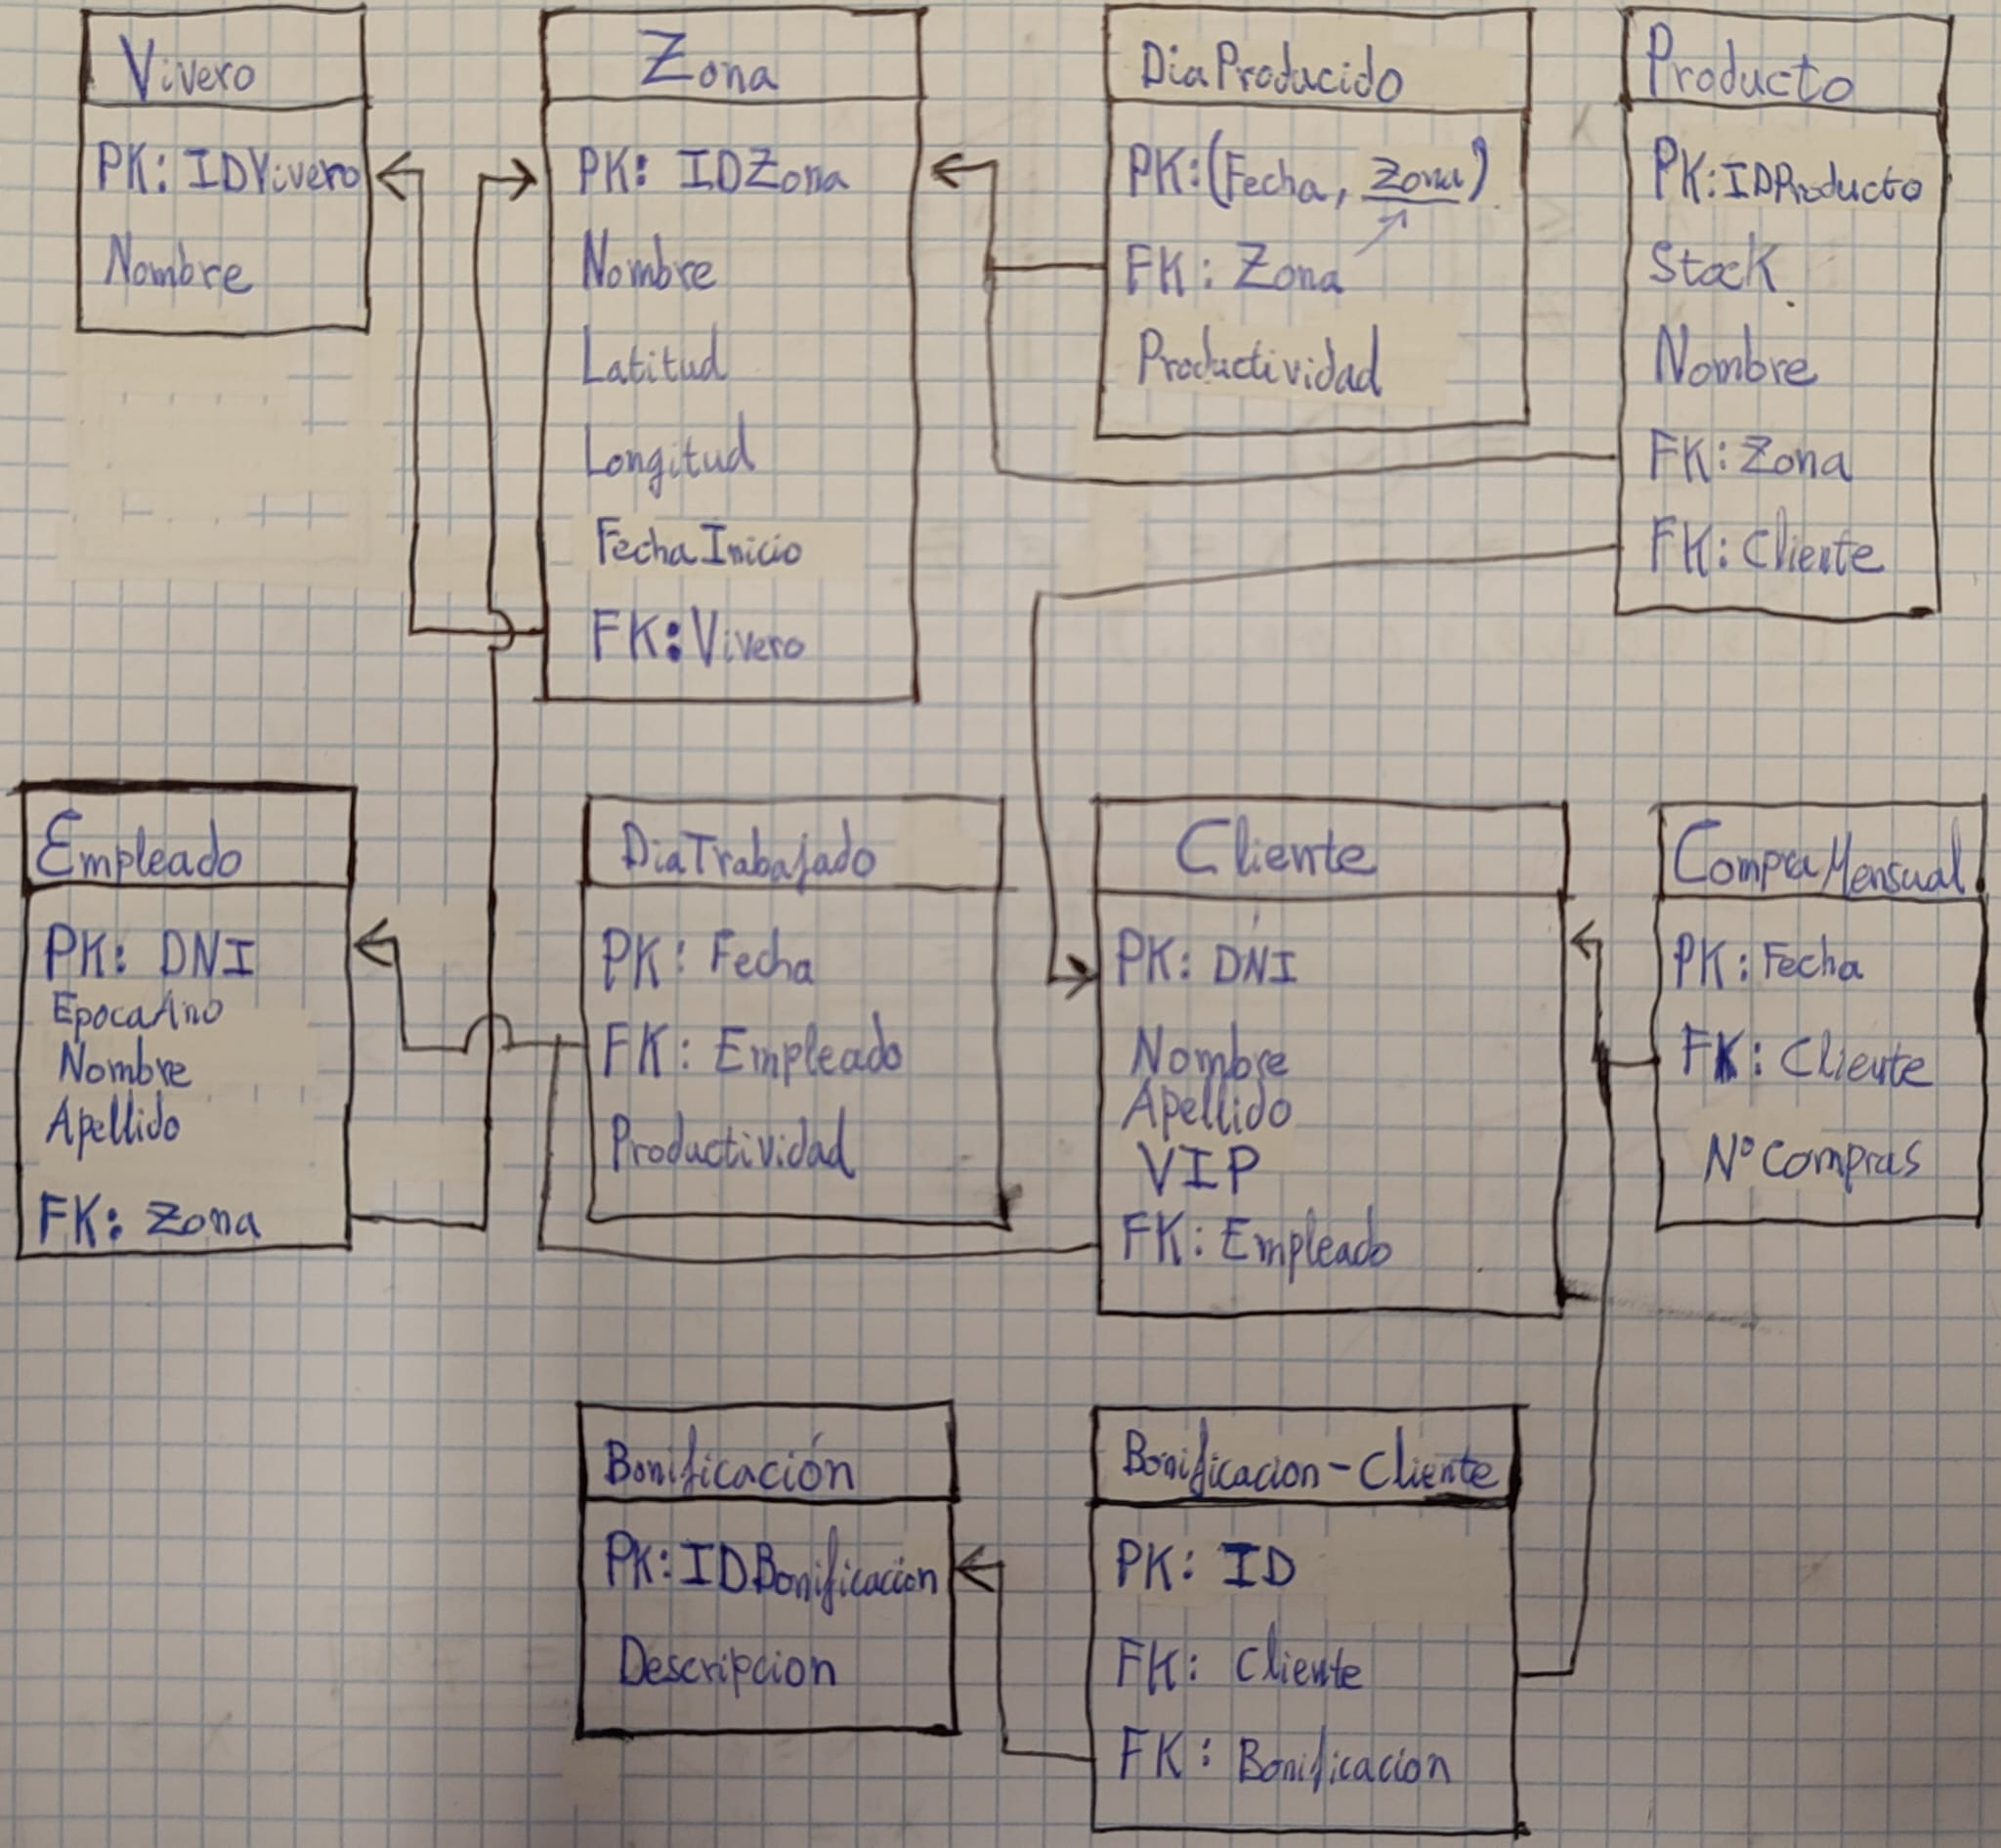 Vivero
PK: IDVivero
Nombre
Zona
PK: IDZona
Nombre
Latitud
Longitud
FechaInicio
FK: Vivero
DiaProducido
PK:(Fecha, Zona)
FK: Zona
Productividad
Producto
PK:IDProducto
Stock
Nombre
FK: Zona
FK: Cliente
Empleado
PK: DNI
EpocaAno
Nombre
Apellido
FK: Zona
DiaTrabajado
PK: Fecha
FK: Empleado
Productividad
Cliente
PK: DNI
Nombre
Apellido
VIP
FK: Empleado
CompraMensual
PK: Fecha
FK: Cliente
Nº Compras
Bonificación
PK: IDBonificacion
Descripcion
Bonificacion-Cliente
PK: ID
FK: Cliente
FK: Bonificacion